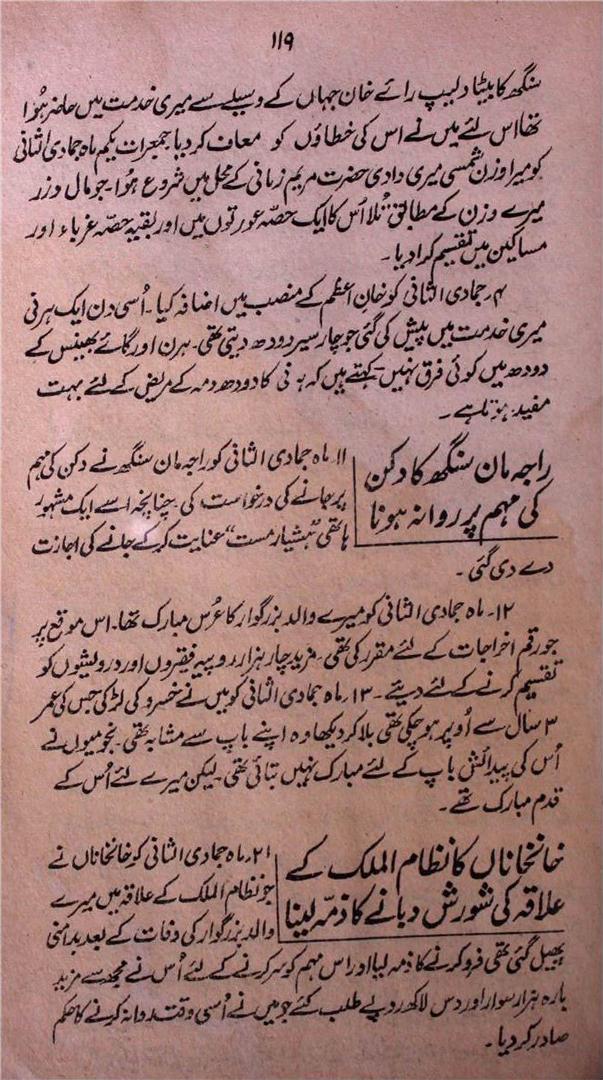 ۱۱۹
سنگھ کا بیٹا دلیپ رائے خان جہاں کے وسیلے سے میری خدمت میں حاضر ہُوا
تھا اس لئے میں نے اس کی خطاؤں کو معاف کر دیا۔ جمعرات یکم ماہ جمادی الثانی
کو میرا وزن شمسی میری دادی حضرت مریم زمانی کے محل میں شروع ہُوا۔ جو مال و زر
میرے وزن کے مطابق تُلا اُس کا ایک حصّہ عورتوں میں اور بقیہ حصّہ غرباء اور
مساکین میں تقسیم کرا دیا۔
۴۔ جمادی الثانی کو خانِ اعظم کے منصب میں اضافہ کیا۔ اُسی دن ایک ہرنی
میری خدمت میں پیش کی گئی جو چار سیر دودھ دیتی تھی۔ ہرن اور گائے بھینس کے
دودھ میں کوئی فرق نہیں۔ کہتے ہیں کہ ہرنی کا دودھ دمہ کے مریض کے لئے بہت
مفید ہوتا ہے۔
راجہ مان سنگھ کا دکن
کی مہم پر روانہ ہونا
۱۱۔ ماہ جمادی الثانی کو راجہ مان سنگھ نے دکن کی مہم
پر جانے کی درخواست کی۔ چنانچہ اسے ایک مشہور
ہاتھی "ہشیار مست" عنایت کر کے جانے کی اجازت
دے دی گئی۔
۱۲۔ ماہ جمادی الثانی کو میرے والد بزرگوار کا عُرس مبارک تھا۔ اس موقع پر
جو رقم اخراجات کے لئے مقرر کی تھی۔ مزید چار ہزار روپیہ فقیروں اور درویشوں کو
تقسیم کرنے کے لئے دیئے۔ ۱۳۔ ماہ جمادی الثانی کو میں نے خسرو کی لڑکی جس کی عمر
۳ سال سے اُوپر ہو چکی تھی بلا کر دیکھا وہ اپنے باپ سے مشابہ تھی۔ نجومیوں نے
اُس کی پیدائش باپ کے لئے مبارک نہیں بتائی تھی۔ لیکن میرے لئے اُس کے
قدم مبارک تھے۔
خانخاناں کا نظام الملک کے
علاقہ کی شورش دبانے کا ذمّہ لینا
۲۱۔ ماہ جمادی الثانی کو خانخاناں نے
جو نظام الملک کے علاقہ میں میرے
والد بزرگوار کی وفات کے بعد بدامنی
پھیل گئی تھی فرو کرنے کا ذمہ لیا اور اس مہم کو سر کرنے کے لئے اُس نے مجھ سے مزید
بارہ ہزار سوار اور دس لاکھ روپے طلب کئے جو میں نے اُسی وقت روانہ کرنے کا حکم
صادر کر دیا۔